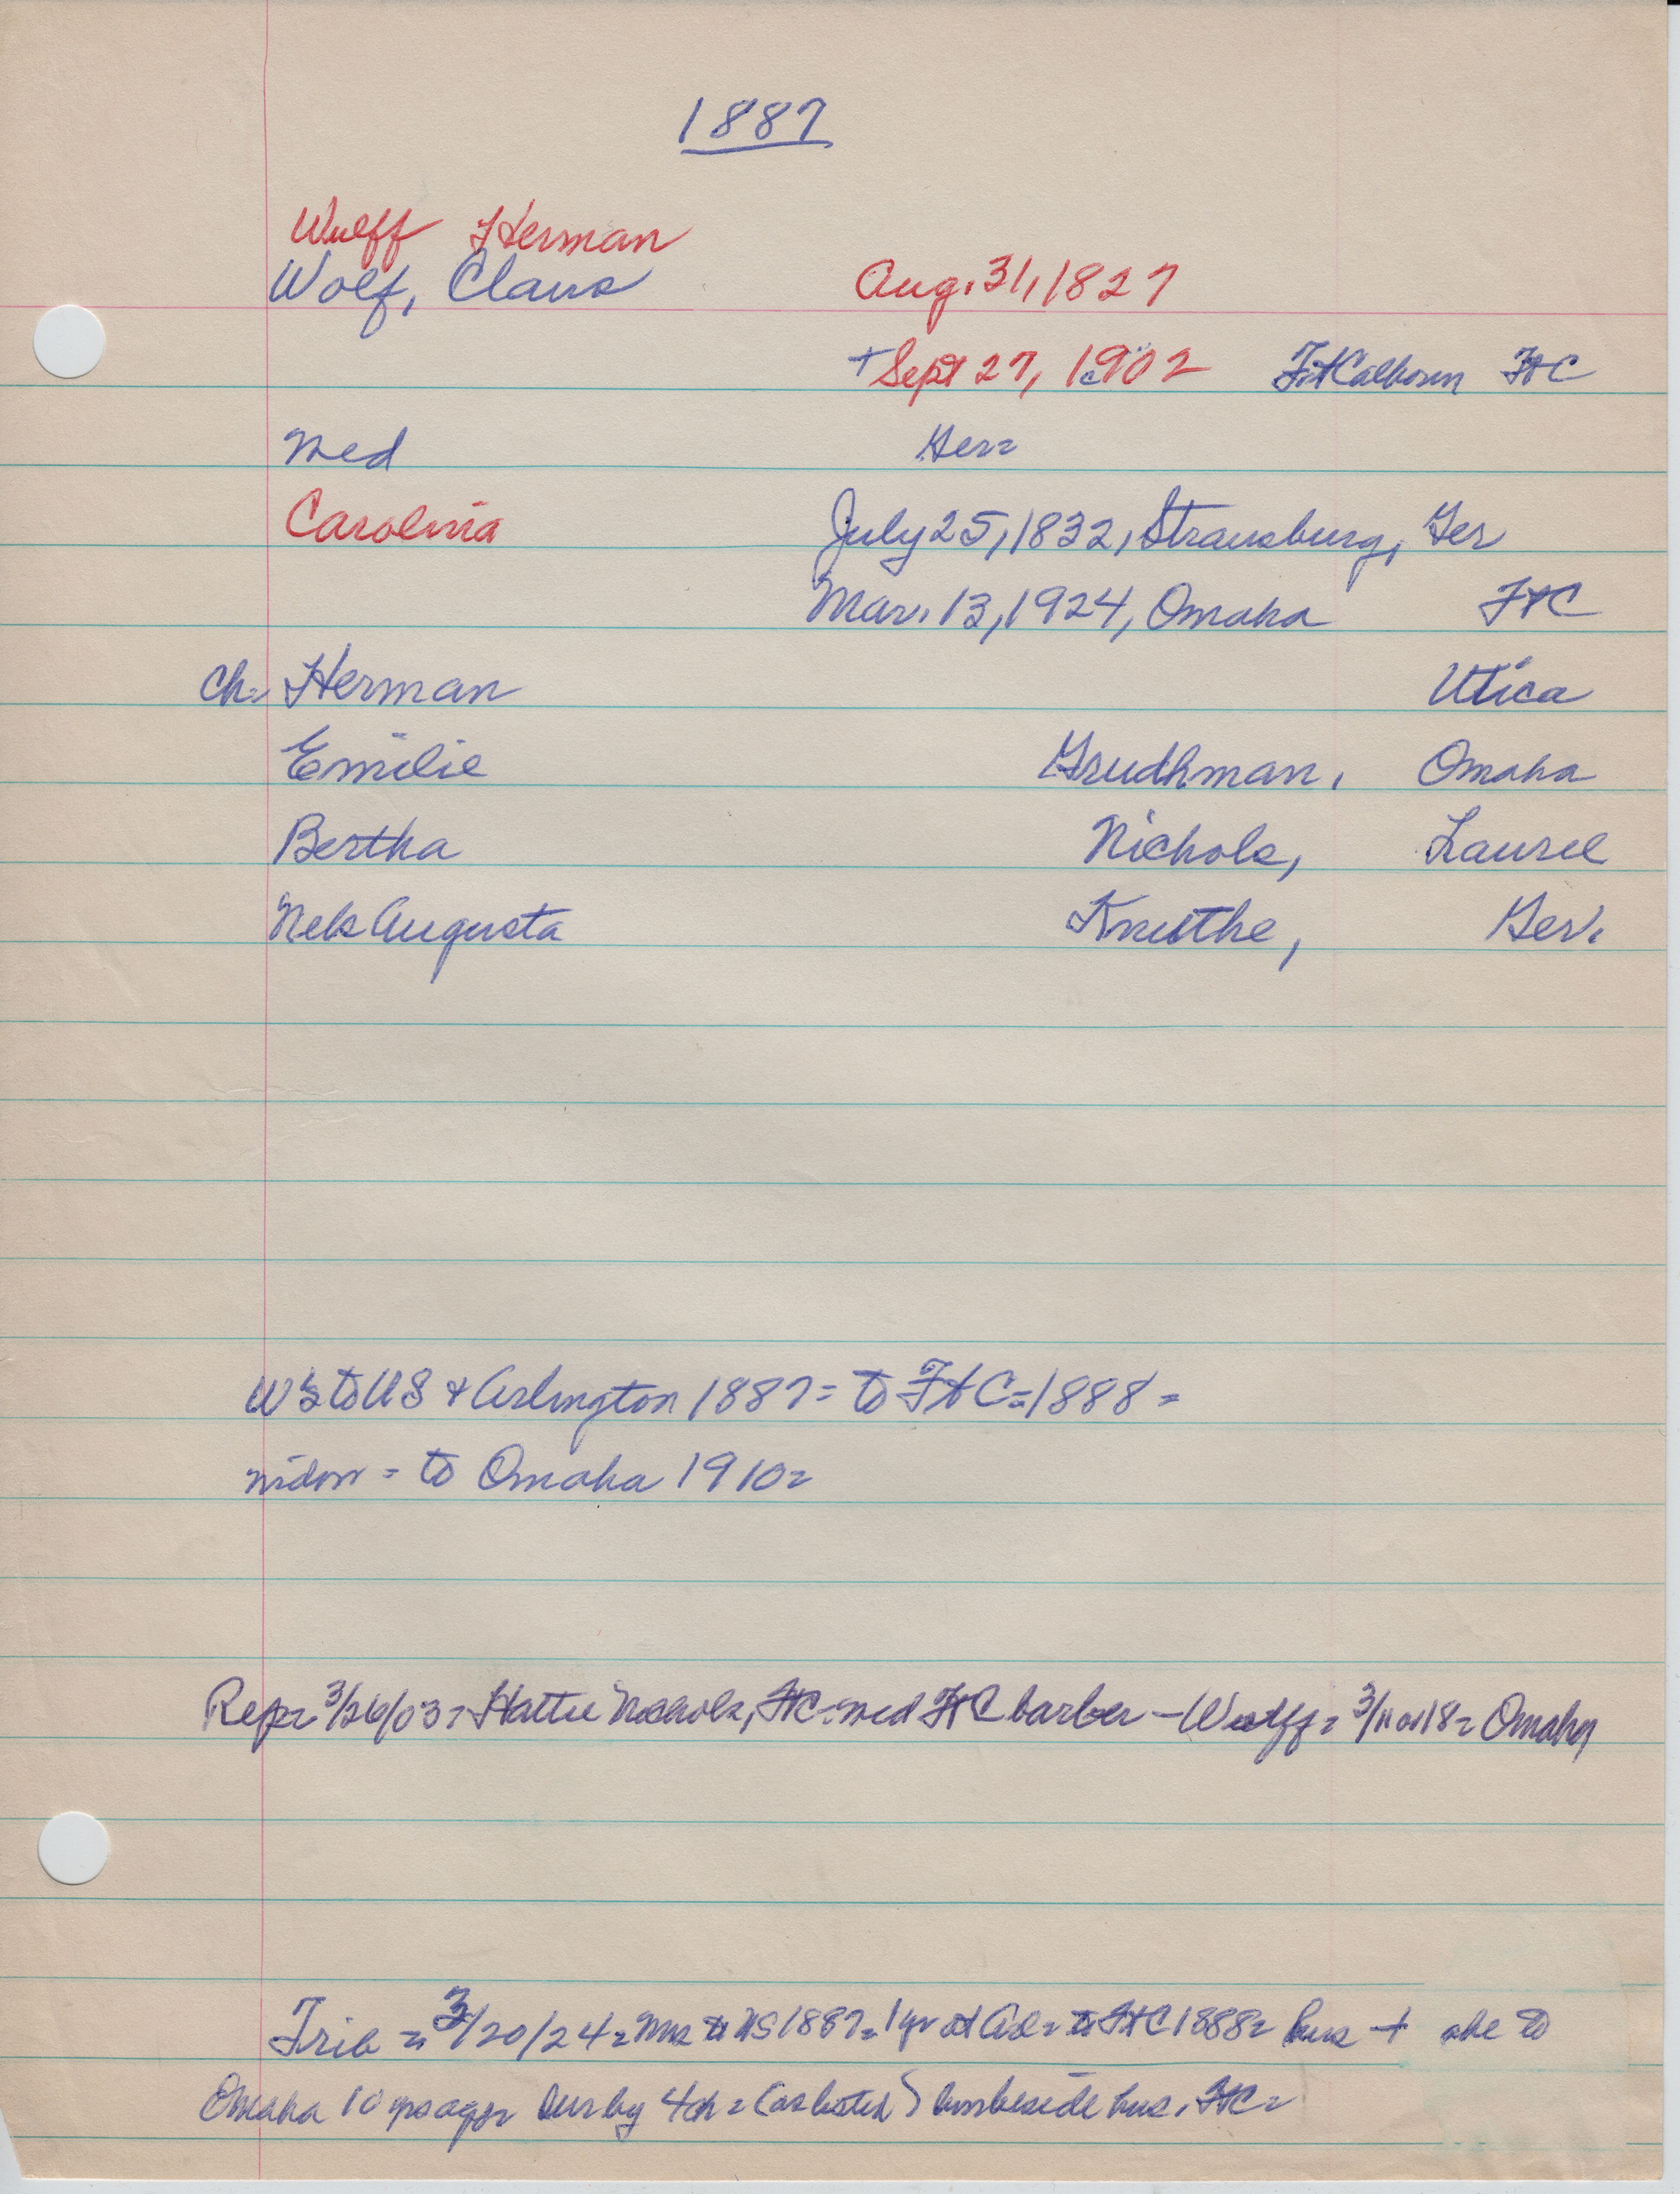 1887
Wulff Herman
Wolf, Claus Aug. 31, 1827
+ Sept 27, 1902 Ft Calhoun FtC
med Ger=
Carolina July 25, 1832, Strausburg, Ger
Mar. 13, 1924, Omaha FtC
ch= Herman Utica
Emilie Grudhman, Omaha
Bertha Nichols, Laurel
Nels Augusta Knuthe, Ger.
W's to US & Arlington 1887= to FtC=1888=
widow = to Omaha 1910=
Rep= 3/26/03= Hattie Nichols, FtC=med FtC barber - Wulff= 3/11 or 18= Omaha
Trib = 3/20/24= Mrs to US 1887= 1 yr at Arl= to FtC 1888= hus + she to
Omaha 10 yrs ago= sur by 4 ch= (as listed) bur beside hus, FtC=